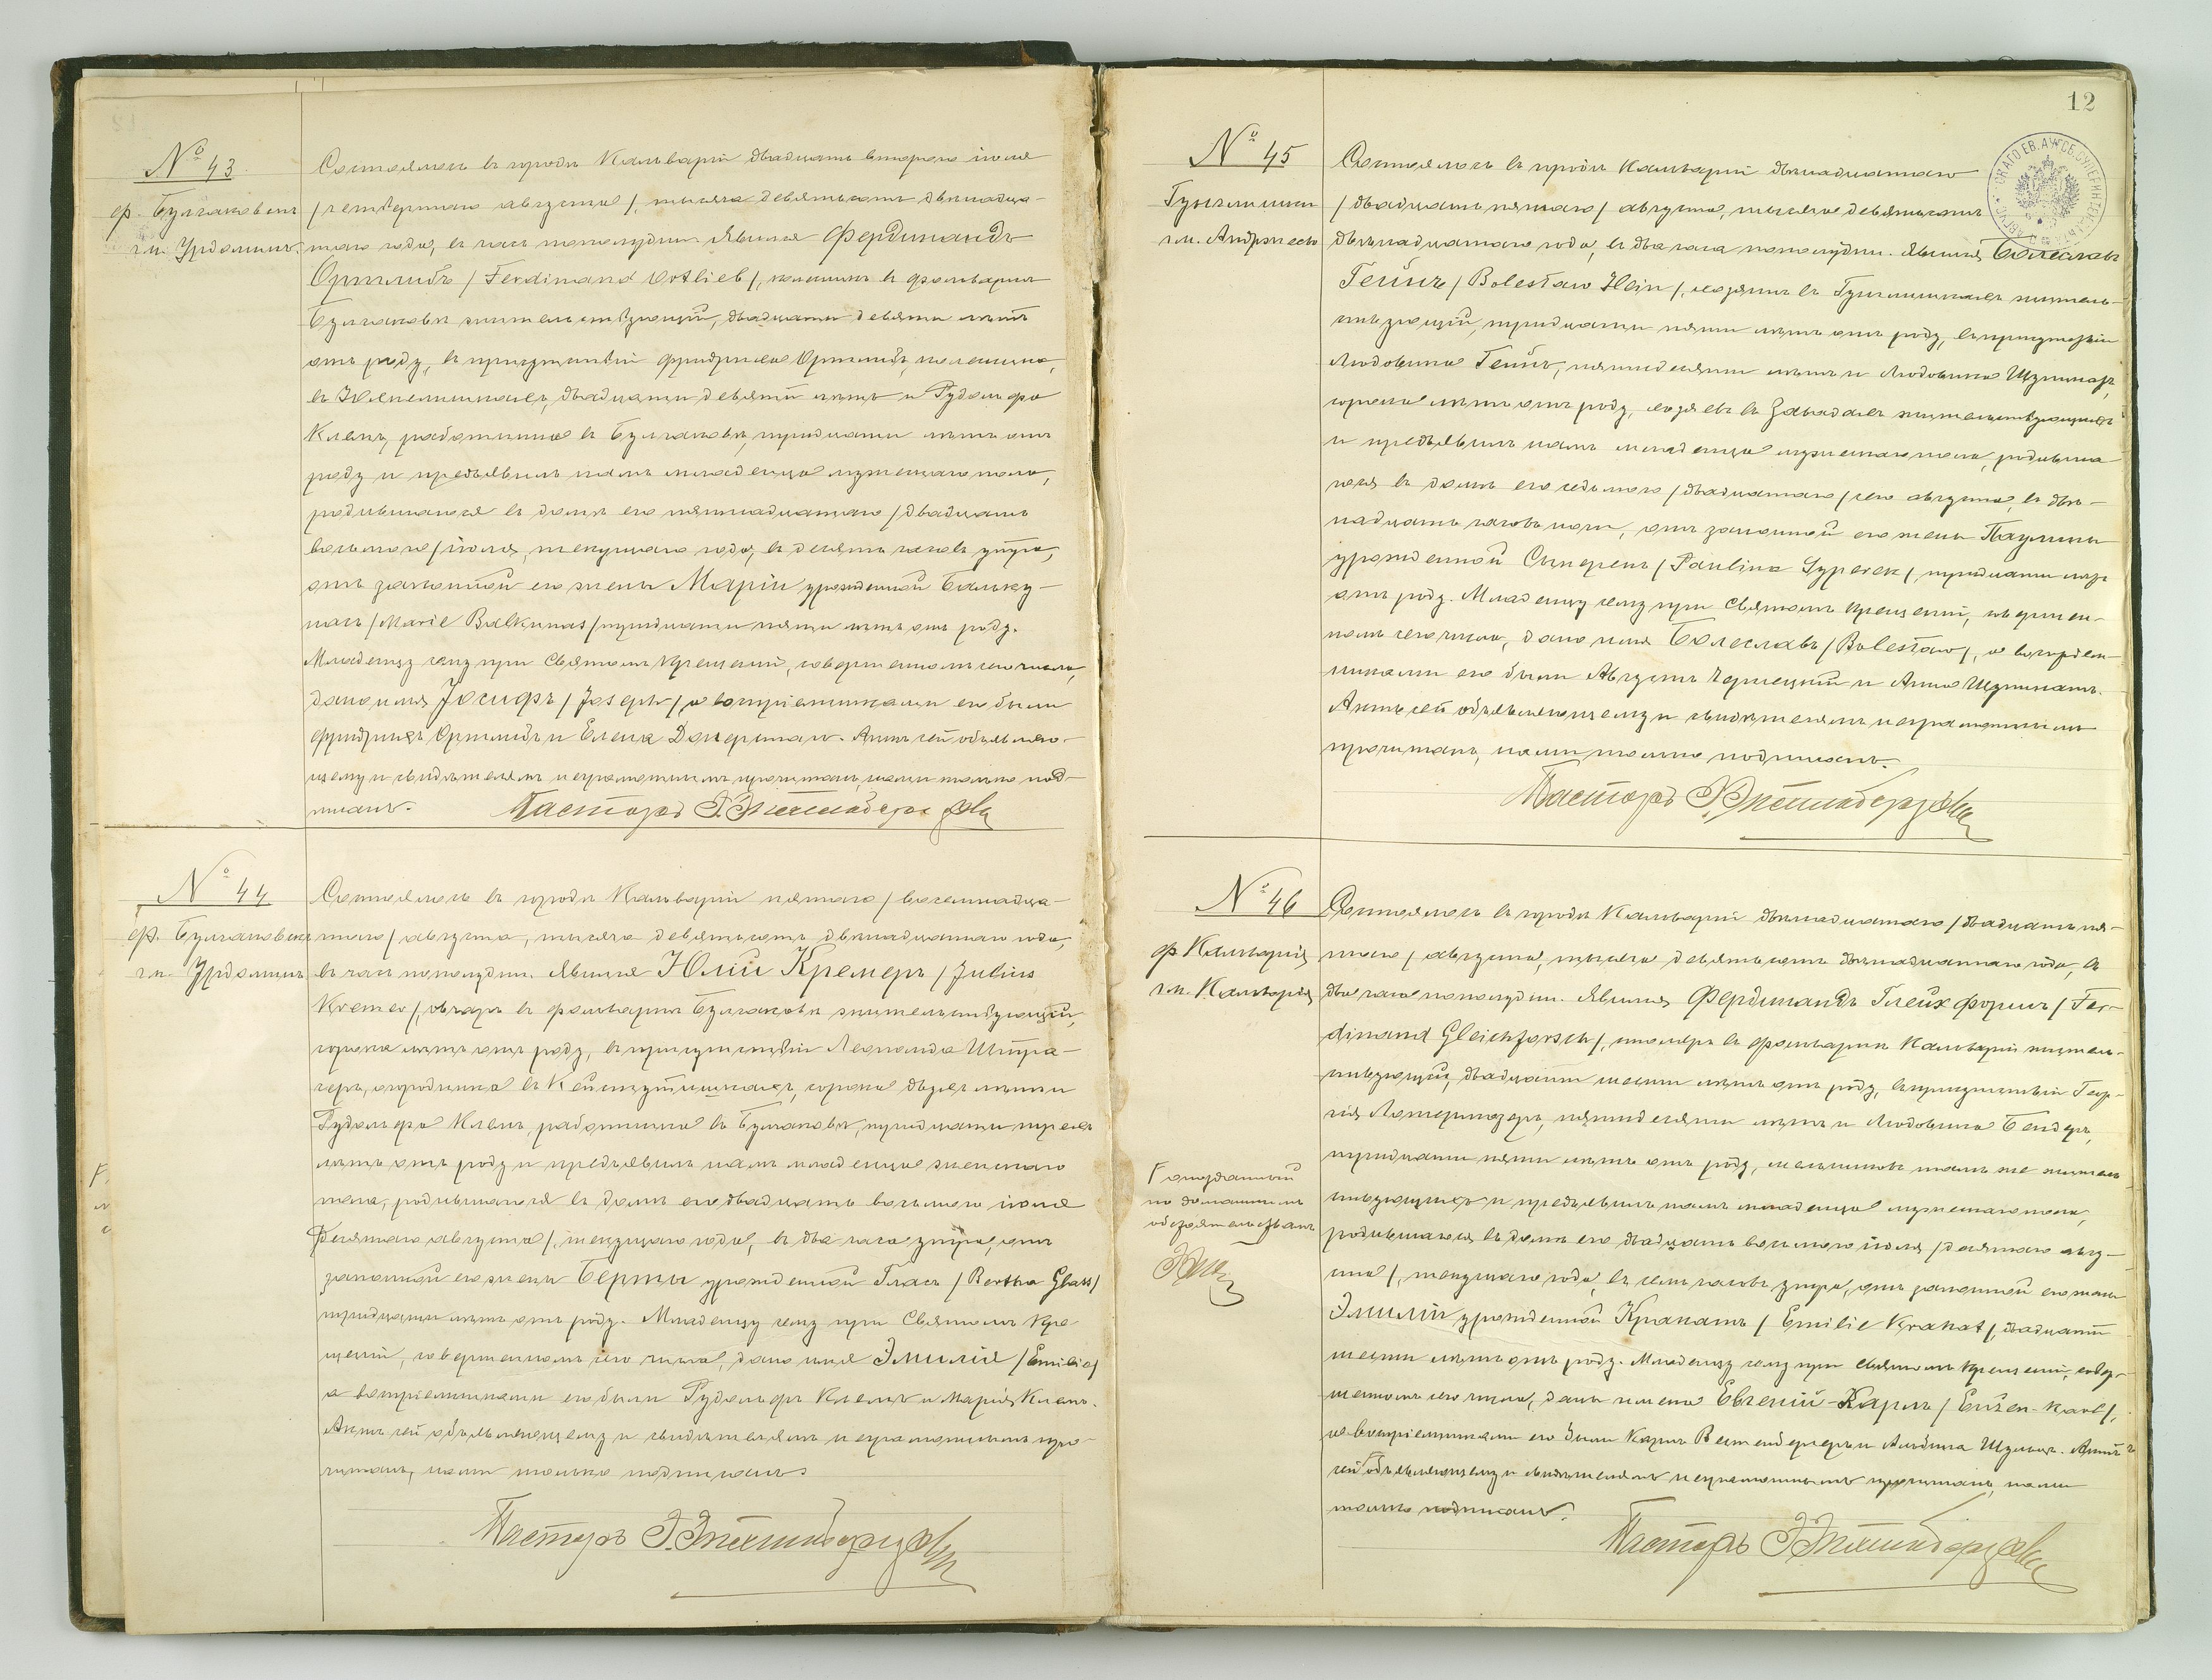 № 43
ф. Булгаковск
гм. Урдоминъ.
Состоялось въ городѣ Кальваріи двадцать второго іюля
/четвертаго августа/, тысяча девятьсотъ двѣнадца-
таго года, въ часъ пополудни. Явился Фердинандъ
Ортлибъ /Ferdinand Ortlieb/, въ фольваркѣ
Булгаковскъ жительствующій, двадцати девяти лѣтъ
отъ роду, въ присутствіи Фридриха Ортлибъ,
двадцати девяти лѣтъ и Рудольфа
Клемъ, работника въ Булгаковскъ, тридцати лѣтъ отъ
роду и предъявилъ намъ младенца мужескаго пола,
родившагося въ домѣ его пятнадцатаго /двадцать
восьмого/ іюля, текущаго года, въ десять часовъ утра,
отъ законной его жены Маріи урожденной Бальку-
насъ /Marie Balkunas/ тридцати пяти лѣтъ отъ роду.
Младенцу сему при Святомъ Крещеніи, совершенномъ сего числа,
дано имя Іосифъ /Joseph/, а воспріемниками его были
Фридрихъ Ортлибъ и Елена. Актъ сей объявляю-
щему и свидѣтелямъ неграмотнымъ прочитанъ, нами только под-
писанъ. Пасторъ
№ 44
ф. Булгаковскъ
гм. Урдоминъ
Состоялось въ городѣ Кальваріи пятаго /восемнадца-
таго/ августа, тысяча девятьсотъ двѣнадцатаго года,
въ часъ пополудни. Явился Юлій Кремеръ /Julius
Kremer/, овчаръ въ фольваркѣ Булгаковскъ жительствующій,
сорока лѣтъ отъ роду, въ присутствіи Леопольда Штра-
серъ, огородника въ, сорока двухъ лѣтъ и
Рудольфа Клемъ, работника въ Булгаковскъ, тридцати трехъ
лѣтъ отъ роду и предъявилъ намъ младенца женскаго
пола, родившагося въ домѣ его двадцать восьмого іюля
/десятаго августа/, текущаго года, въ два часа утра, отъ
законной его жены Берты урожденной Гласъ /Bertha Glass/
тридцати лѣтъ отъ роду. Младенцу сему при Святомъ Кре-
щеніи, совершенномъ сего числа, дано имя Эмилія /Emilia/
а воспріемниками его были Рудольфъ Клемъ и Марія Клемъ.
Актъ сей объявляющему и свидѣтелямъ неграмотнымъ про-
читанъ, нами только подписанъ.
Пасторъ
12
№ 45
гм. Андржеево
Состоялось въ городѣ Кальваріи двѣнадцатаго
/двадцать пятаго/ августа, тысяча девятьсотъ
двѣнадцатаго года, въ два часа пополудни. Явился Болеславъ
Гейнъ /Bolesław Hein/, хозяинъ въ житель-
ствующій, тридцати пяти лѣтъ отъ роду, въ присутствіи
Людовика Гейнъ, пятидесяти лѣтъ и Людовика
сорока лѣтъ отъ роду, хозяевъ въ Завадахъ жительствующихъ
и предъявилъ намъ младенца мужескаго пола, родивша-
гося въ домѣ его седьмого /двадцатаго/ сего августа, въ двѣ-
надцать часовъ ночи, отъ законной его жены Паулины
урожденной Сыперекъ /Paulina Syperek/, тридцати лѣтъ
отъ роду. Младенцу сему при Святомъ Крещеніи, совершен-
номъ сего числа, дано имя Болеславъ /Bolesław/, а воспріем-
никами его были Августъ и Анна.
Актъ сей объявляющему и свидѣтелямъ неграмотнымъ
прочитанъ, нами только подписанъ.
Пасторъ
№ 46
ф. Кальварія
гм. Кальварія
Состоялось въ городѣ Кальваріи двѣнадцатаго /двадцать пя-
таго/ августа, тысяча девятьсотъ двѣнадцатаго года, въ
два часа пополудни. Явился Фердинандъ Глейхфоршъ /Fer-
dinand Gleichforsch/, столяръ въ фольваркѣ Кальварія житель-
ствующій, двадцати шести лѣтъ отъ роду, въ присутствіи Геор-
гія, пятидесяти лѣтъ и Людовика Бендеръ,
тридцати пяти лѣтъ отъ роду, тамъ же житель-
ствующихъ и предъявилъ намъ младенца мужескаго пола,
родившагося въ домѣ его двадцать восьмого іюля /десятаго авгу-
ста/, текущаго года, въ семь часовъ утра, отъ законной его жены
Эмиліи урожденной Кракатъ /Emilie Krakat/, двадцати
шести лѣтъ отъ роду. Младенцу сему при Святомъ Крещеніи, совер-
шенномъ сего числа, даны имена Евгеній-Карлъ /Eugen-Karl/,
а воспріемниками его были Карлъ и Альбина Шульцъ. Актъ
сей объявляющему и свидѣтелямъ неграмотнымъ прочитанъ, нами
только подписанъ.
Пасторъ
опозданный
по домашнимъ
обстоятельствамъ